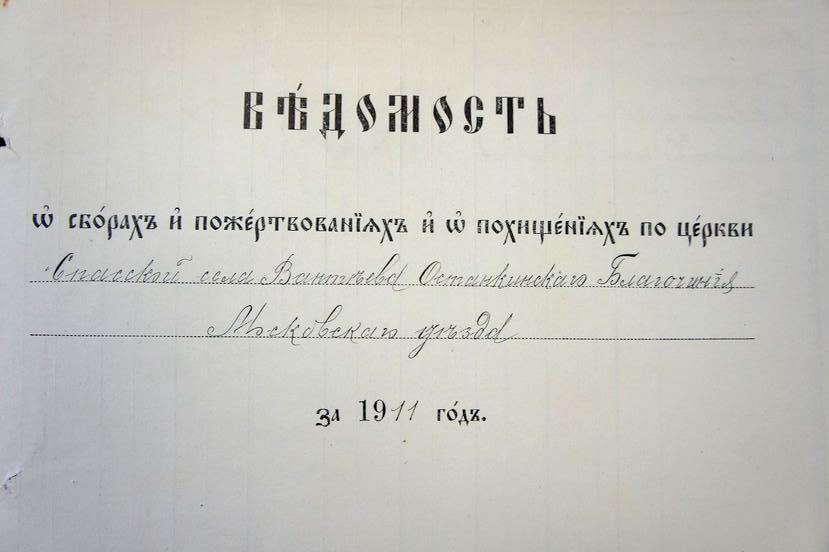 ВѢ́ДОМОСТЬ
Ѡ҆ СБО́РАХЪ И҆ ПОЖЕ́РТВОВАНЇѦХЪ И҆ Ѡ҆ ПОХИЩЕ́НЇѦХЪ ПО ЦЕ́РКВИ
Спасской села Вантѣева Останкинскаго Благочинія
Московскаго уѣзда
За 1911 го́дъ.